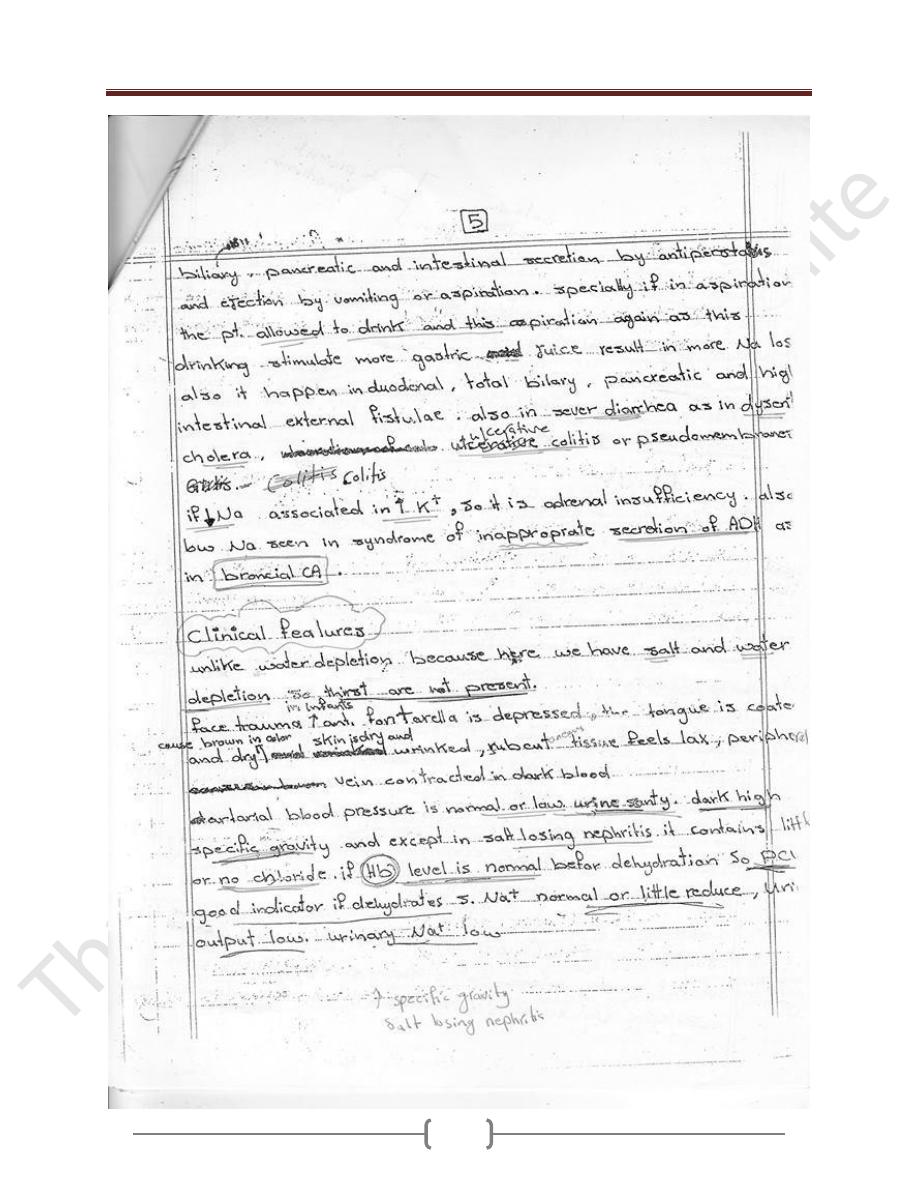 5
biliary, pancreatic and intestinal secretion by antiperstalsis
and ejection by vomiting or aspiration. specially if in aspiration
the pt. allowed to drink and this aspiration again as this
drinking stimulate more gastric juice result in more Na los
also it happen in duodenal, total bilary, pancreatic and high
intestinal external fistulae. also in sever diarrhea as in dysent
cholera, ulcerative colitis or pseudomembraner
Colitis
if ↓Na associated in ↑ K+, so it is adrenal insufficiency. also
low Na seen in syndrome of inapproprate secretion of ADH as
in broncial CA.
Clinical features
unlike water depletion because here we have salt and water
depletion so thirst are not present.
in infants
face trauma ↑ ant. fontarella is depressed, the tongue is coate
cause brown in color skin is dry and
and dry wrinked, subcut tissue feels lax, peripheral
vein contracted in dark blood
artarial blood pressure is normal or low. urine santy. dark high
specific gravity and except in salt losing nephritis it contains littl
or no chloride. if Hb level is normal befor dehydration so PCV
good indicator if dehydrates s. Na+ normal or little reduce, Uri
output low. urinary Na+ low
↑ specific gravity
salt losing nephritis